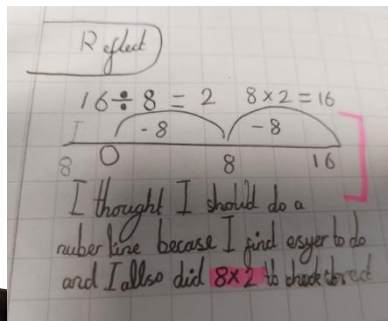 Reflect
16 ÷ 8 = 2 8 × 2 = 16
-8 -8
0 8 16
8
I thought I should do a
nuber line becase I find esyer to do
and I allso did 8×2 to check